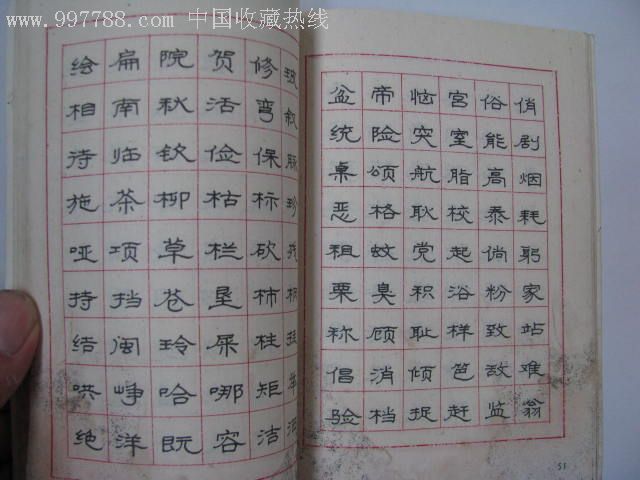 www.997788.com 中国收藏热线
绘扁院贺修玻
相南秋活弯叙
待临钦俭保脉
施茶柳枯标珍
哑项草栏砍
持挡苍垦柿柄
结闽玲屎柱
哄峥哈哪矩
绝洋既容洁
盆帝恼宫俗俏
统险突室能剧
桌颂航脂高烟
恶格耿校泰耗
租蚊党起倘躬
栗臭积浴粉家
称顾耻样致站
倡消倾笆敌难
验档捉赶监翁
51